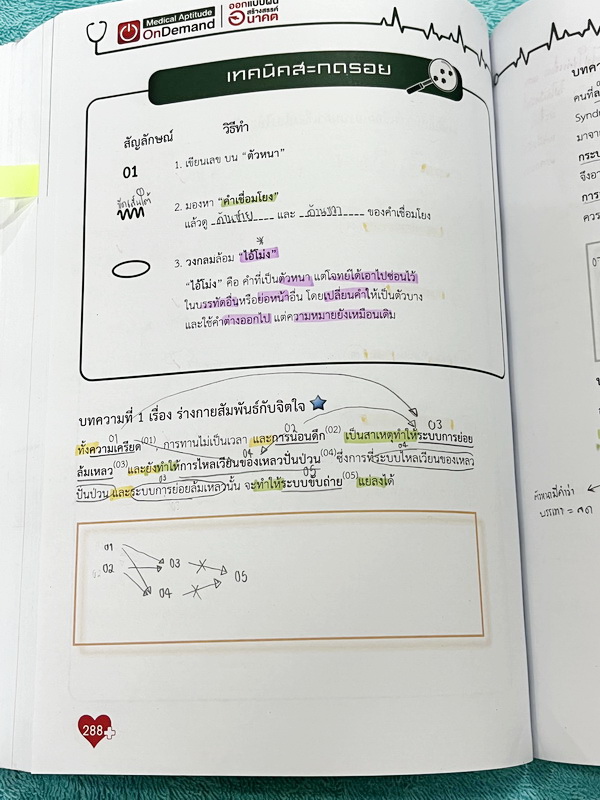 Medical Aptitude
OnDemand
ออกแบบฝัน
สร้างสรรค์
อนาคต
เทคนิคสะกดรอย
สัญลักษณ์ วิธีทำ
01 1. เขียนเลข บน "ตัวหนา"
ขีดเส้นใต้ 2. มองหา "คำเชื่อมโยง"
แล้วดู ด้านซ้าย และ ด้านขวา ของคำเชื่อมโยง
3. วงกลมล้อม "ไอ้โม่ง"
"ไอ้โม่ง" คือ คำที่เป็นตัวหนา แต่โจทย์ได้เอาไปซ่อนไว้
ในบรรทัดอื่นหรือย่อหน้าอื่น โดยเปลี่ยนคำให้เป็นตัวบาง
และใช้คำต่างออกไป แต่ความหมายยังเหมือนเดิม
บทความที่ 1 เรื่อง ร่างกายสัมพันธ์กับจิตใจ
01 02 03
ทั้งความเครียด(01) การทานไม่เป็นเวลา และการนอนดึก(02) เป็นสาเหตุทำให้ระบบการย่อย
04 04
ล้มเหลว(03)และยังทำให้การไหลเวียนของเหลวปั่นป่วน(04)ซึ่งการที่ระบบไหลเวียนของเหลว
03 05
ปั่นป่วน และระบบการย่อยล้มเหลวนั้น จะทำให้ระบบขับถ่าย(05)แย่ลงได้
01
02 03 05
04
288
บทควา
คนที่
Syndr
มาจา
กระบ
จึงอา
การ
ควร
ตัวหนามีคำว่า
บรรเทา = ลด